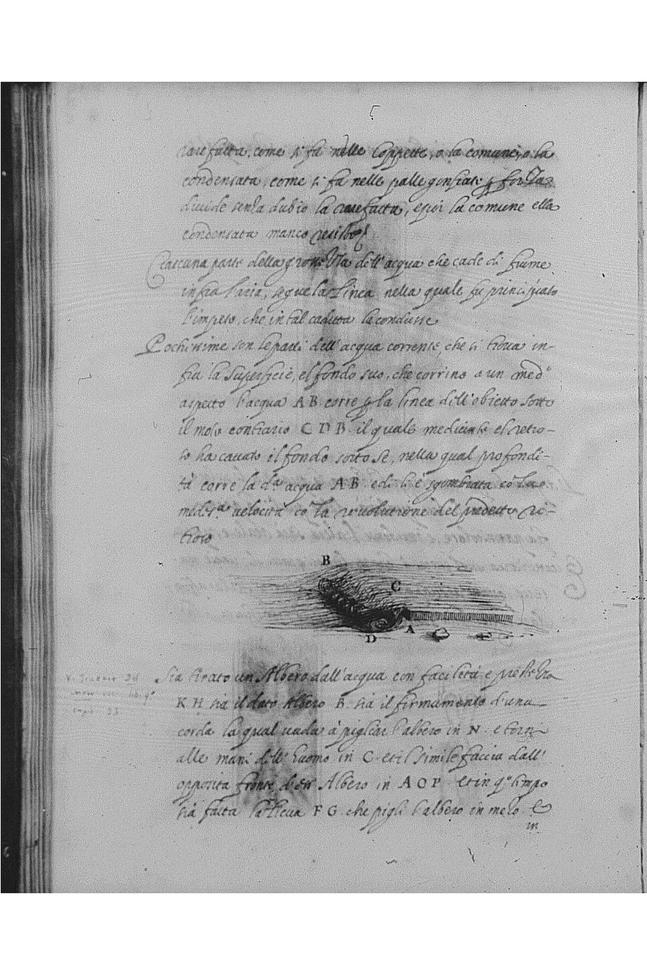 rarefatta, come si fa nelle coppette, o la comune, o la
condensata, come si fa nelle palle gonfiate
divide senza dubio la rarefatta, e poi la comune ella
condensata manco resisto
Ciascuna parte della grossezza dell'acqua che cade di fiume
infra l'aria, segue la linea nella quale fu principiato
l'impeto, che in tal caduta la condusse
Pochissime son le parti dell'acqua corrente, che si trova in-
fra la superficie, el fondo suo, che corrino a un med.o
aspetto l'acqua A B corre p la linea dell'obietto sotto
il moto contrario C D B il quale mediante el retro-
so ha cavato il fondo sotto sè, nella qual profondi-
tà corre la d.a acqua A B ed li è sgombrata cō la
med.a velocità cō la revolutione del predetto re-
troso
B
C
A
D
Sia tirato un Albero dall'acqua con facilità e prestezza
K H sia il dato Albero B sia il firmamento d'una
corda la qual vada à pigliar l'albero in N e torni
alle mani dell'huomo in C et il simile faccia dall'
opposita fronte Albero in A O P et in q.o tempo
sia fatta la lieva F G che pigli l'albero in mezo
in